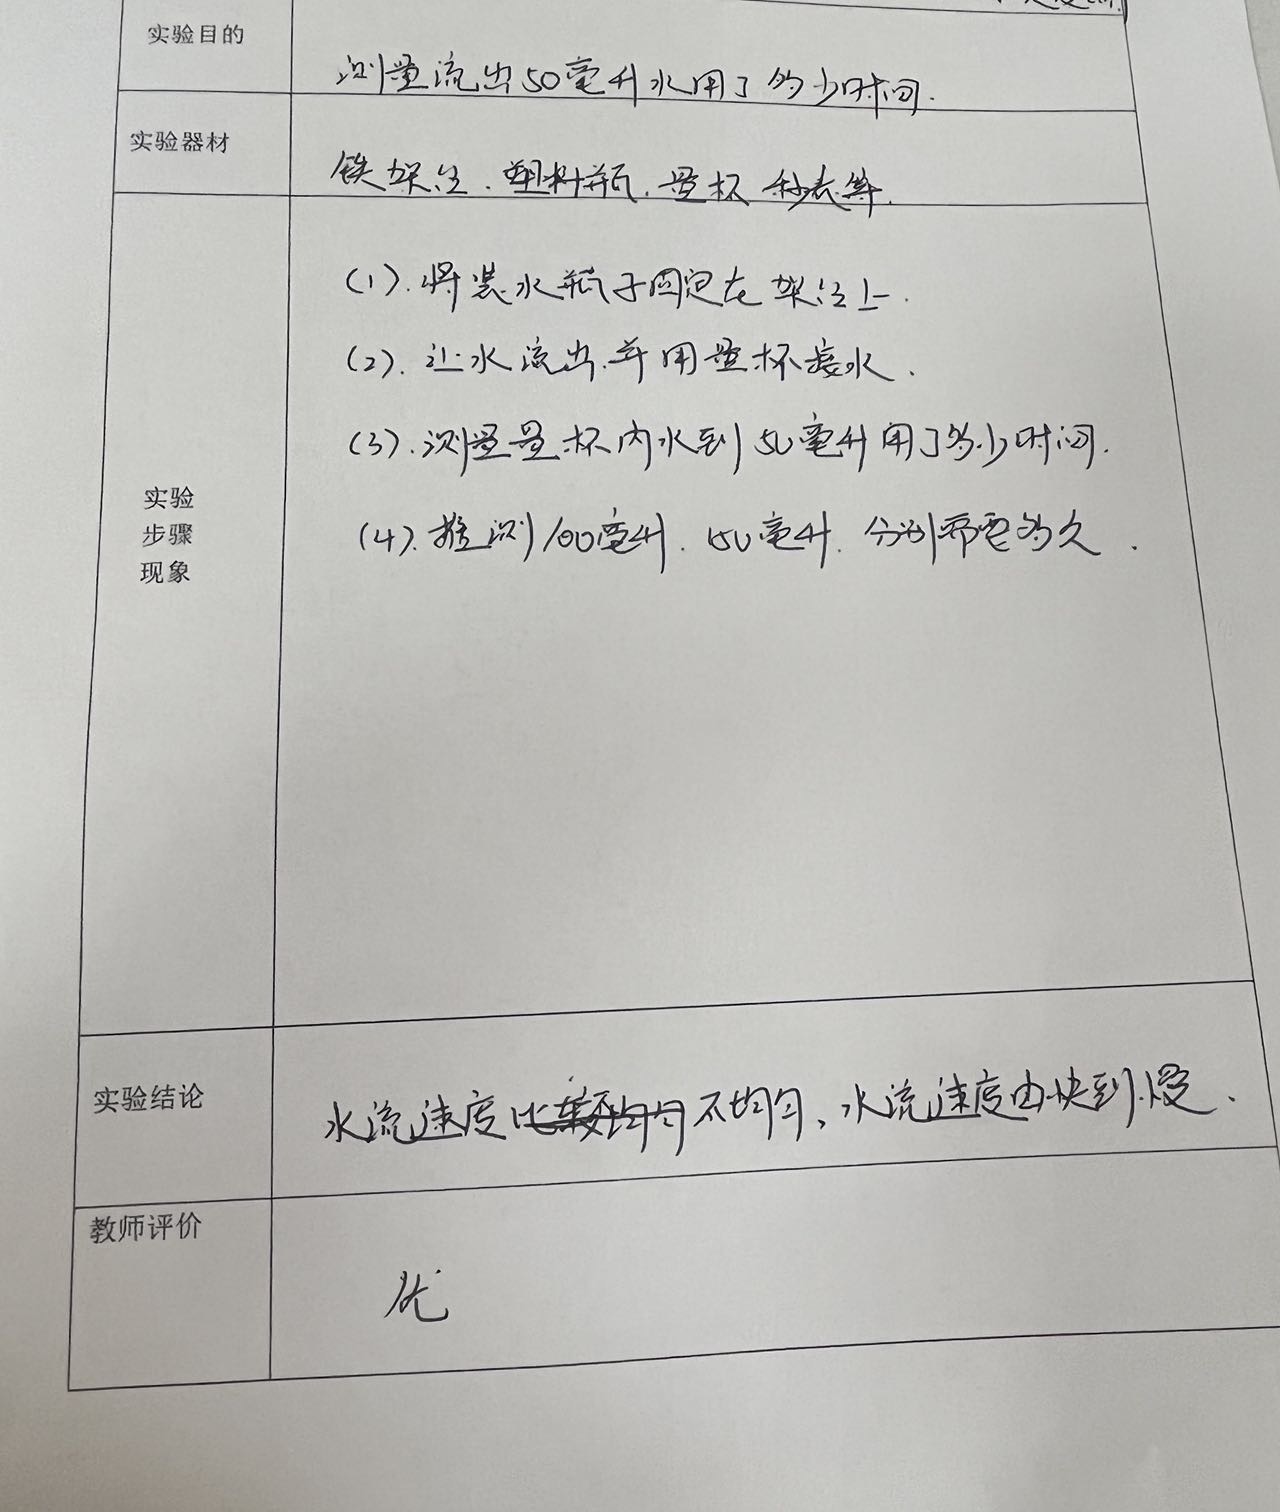 实验目的
测量流出50毫升水用了多少时间.
实验器材
铁架台.塑料瓶.量杯 秒表等.
(1).将装水瓶子固定在架台上.
(2).让水流出.并用量杯接水.
(3).测量量杯内水到50毫升用了多少时间.
(4).推测100毫升.150毫升.分别需要多久.
实验
步骤
现象
实验结论
水流速度比较均匀不均匀,水流速度由快到慢.
教师评价
优